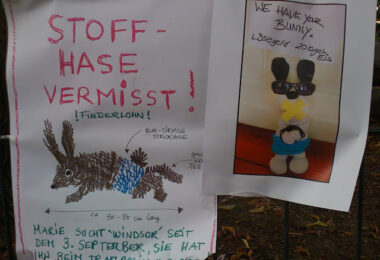 STOFF-
HASE
VERMISST!
!FINDERLOHN!
BLAU-TÜRKISE
ca. 30-34 cm lang
MARIE SUCHT "WINDSOR" SEIT
DEM 3. SEPTEMBER, SIE HAT
IHN BEIM
WE HAVE YOUR
BUNNY.
Lösegeld: 20 kugeln
Eis